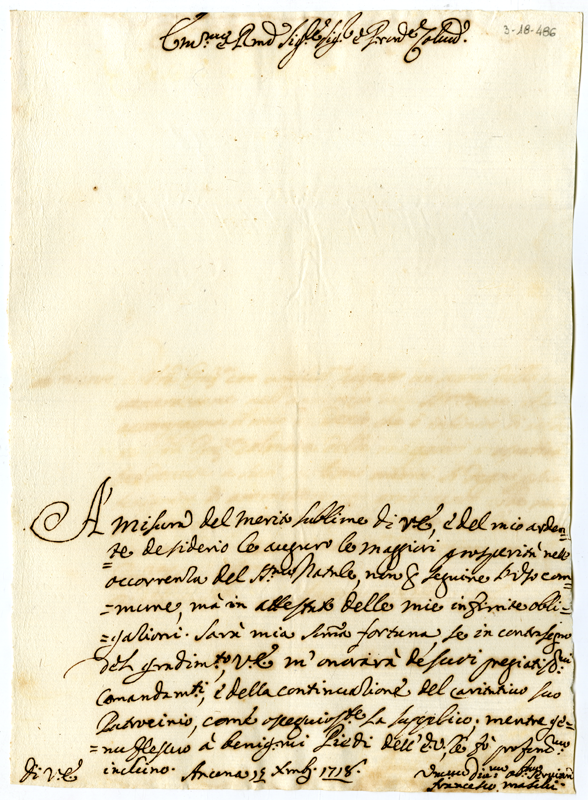 3-18-486
Em.mo e Rmd Sig.r Sig.r e Pron
A' misura del merito sublime di V.E., è del mio arden=
=te desiderio le auguro le maggiori prosperità nelle
occorrenza del S.mo Natale, non seguire com=
=mune, mà in attestato delle mie infinite obli=
=gationi. Sarà mia somma fortuna se in contrasegno
del gradim.to V.E. m'onorarà de suoi pregiatis.mi
comandam.ti, è della continuatione del caritativo suo
Patrocinio, come ossequios.te La supplico; mentre ge=
=nuflesso à benigni Piedi dell'E.V., le fò profond.mo
inchino. Ancona 15 Xmb. 1718.
di V.E.
Francesco